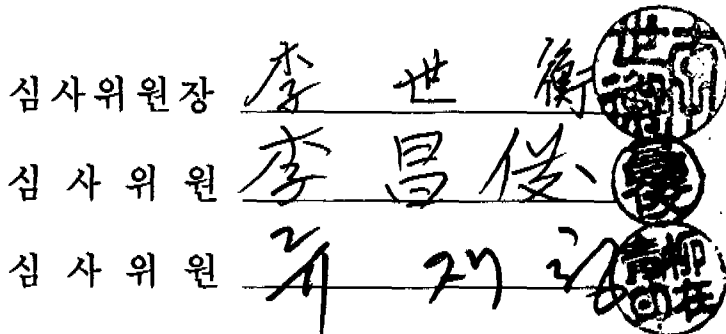 심사위원장 李 世 衡
심사위원 李 昌 俊
심사위원 류 재 청